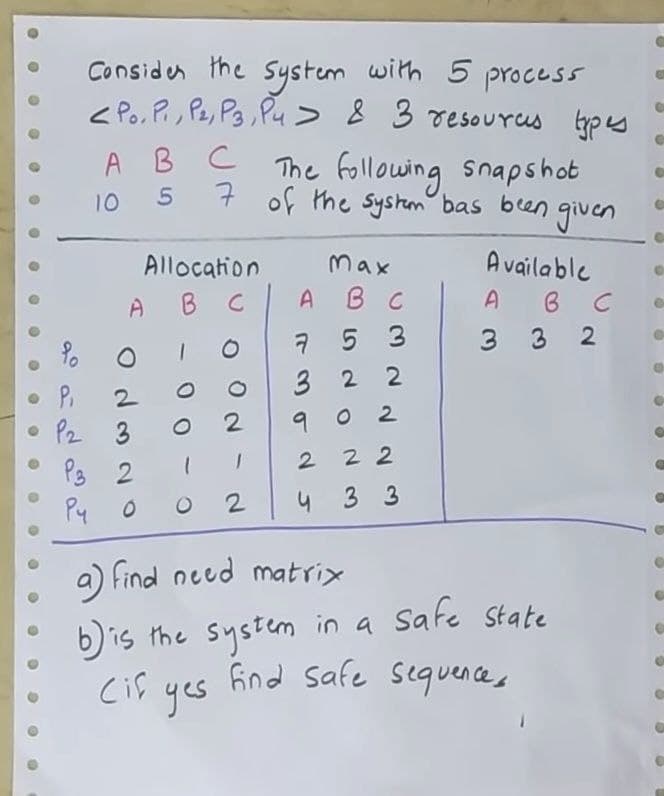 Consider the system with 5 process
< P0, P1, P2, P3, P4 > & 3 resources types
A B C The following snapshot
10 5 7 of the system bas been given
Allocation Max Available
A B C A B C A B C
P0 0 1 0 7 5 3 3 3 2
P1 2 0 0 3 2 2
P2 3 0 2 9 0 2
P3 2 1 1 2 2 2
P4 0 0 2 4 3 3
a) find need matrix
b) is the system in a safe state
(if yes find safe sequences